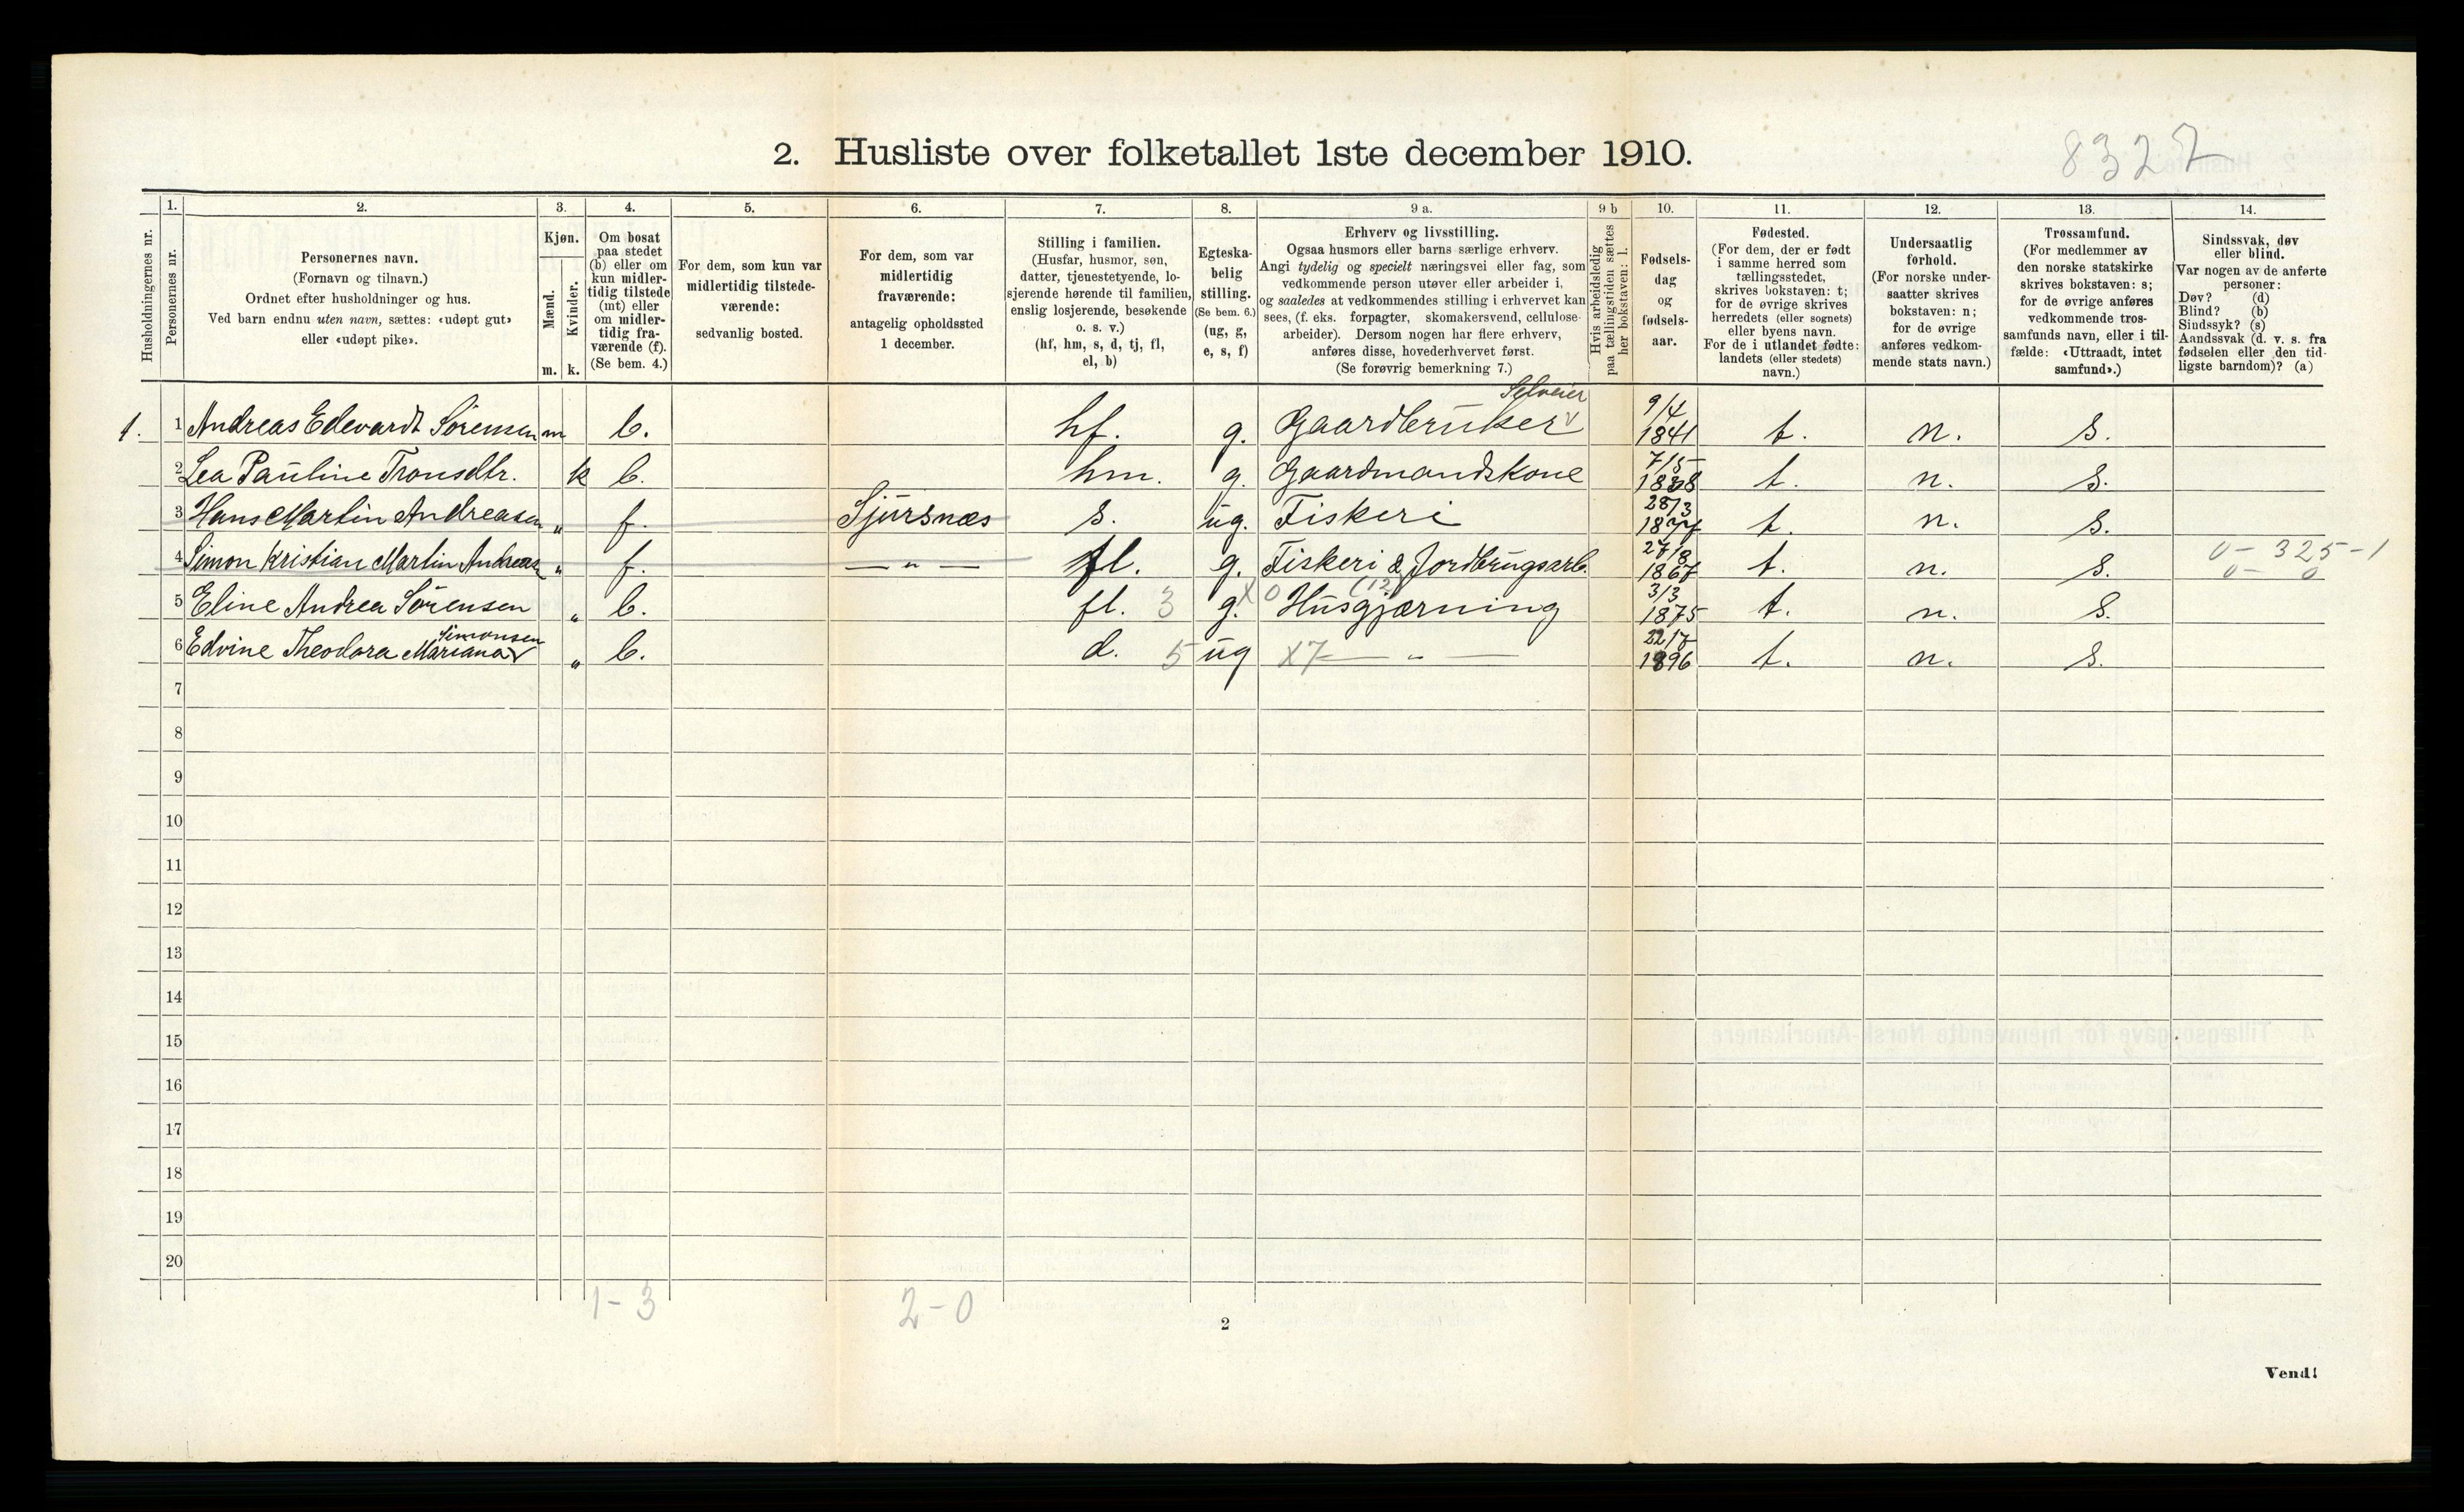 2. Husliste over folketallet 1ste december 1910.
8327
Husholdningernes nr.
1.
Personernes nr.
2.
Personernes navn.
(Fornavn og tilnavn.)
Ordnet efter husholdninger og hus.
Ved barn endnu uten navn, sættes: «udøpt gut»
eller «udøpt pike».
3.
Kjøn.
Mænd.
Kvinder.
m. k.
4.
Om bosat
paa stedet
(b) eller om
kun midler-
tidig tilstede
(mt) eller
om midler-
tidig fra-
værende (f).
(Se bem. 4.)
5.
For dem, som kun var
midlertidig tilstede-
værende:
sedvanlig bosted.
6.
For dem, som var
midlertidig
fraværende:
antagelig opholdssted
1 december.
7.
Stilling i familien.
(Husfar, husmor, søn,
datter, tjenestetyende, lo-
sjerende hørende til familien,
enslig losjerende, besøkende
o. s. v.)
(hf, hm, s, d, tj, fl,
el, b)
8.
Egteska-
belig
stilling.
(Se bem. 6.)
(ug, g,
e, s, f)
9 a.
Erhverv og livsstilling.
Ogsaa husmors eller barns særlige erhverv.
Angi tydelig og specielt næringsvei eller fag, som
vedkommende person utøver eller arbeider i,
og saaledes at vedkommendes stilling i erhvervet kan
sees, (f. eks. forpagter, skomakersvend, cellulose-
arbeider). Dersom nogen har flere erhverv,
anføres disse, hovederhvervet først.
(Se forøvrig bemerkning 7.)
9 b
Hvis arbeidsledig
paa tællingstiden sættes
her bokstaven: l.
10.
Fødsels-
dag
og
fødsels-
aar.
11.
Fødested.
(For dem, der er født
i samme herred som
tællingsstedet,
skrives bokstaven: t;
for de øvrige skrives
herredets (eller sognets)
eller byens navn.
For de i utlandet fødte:
landets (eller stedets)
navn.)
12.
Undersaatlig
forhold.
(For norske under-
saatter skrives
bokstaven: n;
for de øvrige
anføres vedkom-
mende stats navn.)
13.
Trossamfund.
(For medlemmer av
den norske statskirke
skrives bokstaven: s;
for de øvrige anføres
vedkommende tros-
samfunds navn, eller i til-
fælde: «Uttraadt, intet
samfund».)
14.
Sindssvak, døv
eller blind.
Var nogen av de anførte
personer:
Døv? (d)
Blind? (b)
Sindssyk? (s)
Aandssvak (d. v. s. fra
fødselen eller den tid-
ligste barndom)? (a)
Selveier
1. 1 Andreas Edevardt Sørensen m b. hf. g. Gaardbruker v 9/4 1841 t. n. s.
2 Lea Pauline Tronsdtr. k b. hm. g. Gaardmandskone 7/5 1838 t. n. s.
3 Hans Martin Andreasen „ f. Sjursnæs s. ug. Fiskeri 28/3 1877 t. n. s.
4 Simon Kristian Martin Andreas „ f. — „ — fl. g. Fiskeri & Jordbrugsarb. 27/8 1867 t. n. s. 0 - 325 - 1
0 - 0
5 Eline Andrea Sørensen „ b. fl. 3 g. X 0 (12) Husgjærning 3/3 1875 t. n. s.
Simonsen
6 Edvine Theodora Mariana v „ b. d. 5 ug x7 — „ — 22/7 1896 t. n. s.
7
8
9
10
11
12
13
14
15
16
17
18
19
20
1 - 3
2 - 0
2
Vend!